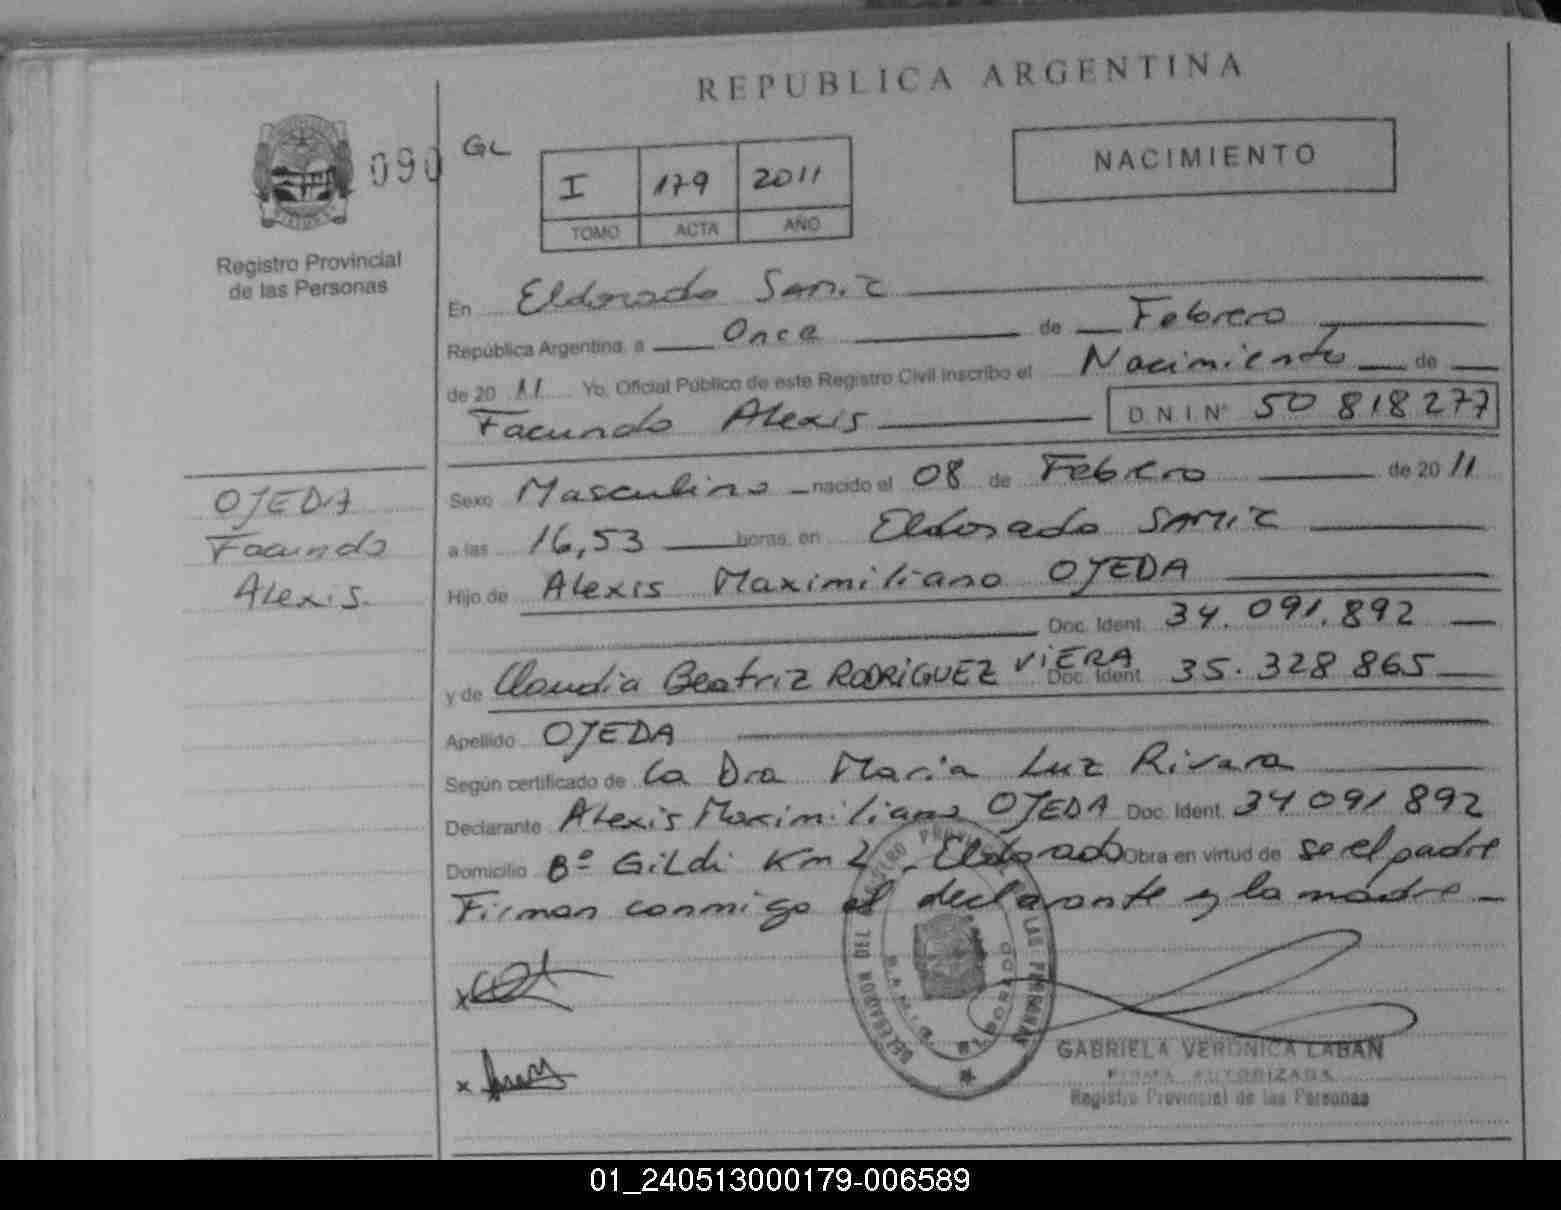 REPUBLICA ARGENTINA
090
GL
I 179 2011
TOMO ACTA AÑO
NACIMIENTO
Registro Provincial
de las Personas
En Eldorado
República Argentina, a Once de Febrero
de 20 11 Yo, Oficial Público de este Registro Civil inscribo el Nacimiento de
Facundo Alexis D.N.I. Nº 50 818 277
OJEDA
Facundo
Alexis.
Sexo Masculino nacido el 08 de Febrero de 20 11
a las 16,53 horas, en Eldorado
Hijo de Alexis Maximiliano OJEDA
Doc. Ident. 34.091.892
y de Claudia Beatriz RODRIGUEZ VIERA Doc. Ident. 35.328 865
Apellido OJEDA
Según certificado de la Dra Maria Luz Rivara
Declarante Alexis Maximiliano OJEDA Doc. Ident. 34 091 892
Domicilio Bº Gildi Km 2 Eldorado Obra en virtud de ser el padre
Firman conmigo el declarante y la madre
DELEGACION DEL REGISTRO PROVINCIAL DE LAS PERSONAS
ELDORADO
GABRIELA VERONICA LABAN
FIRMA AUTORIZADA
Registro Provincial de las Personas
01_240513000179-006589